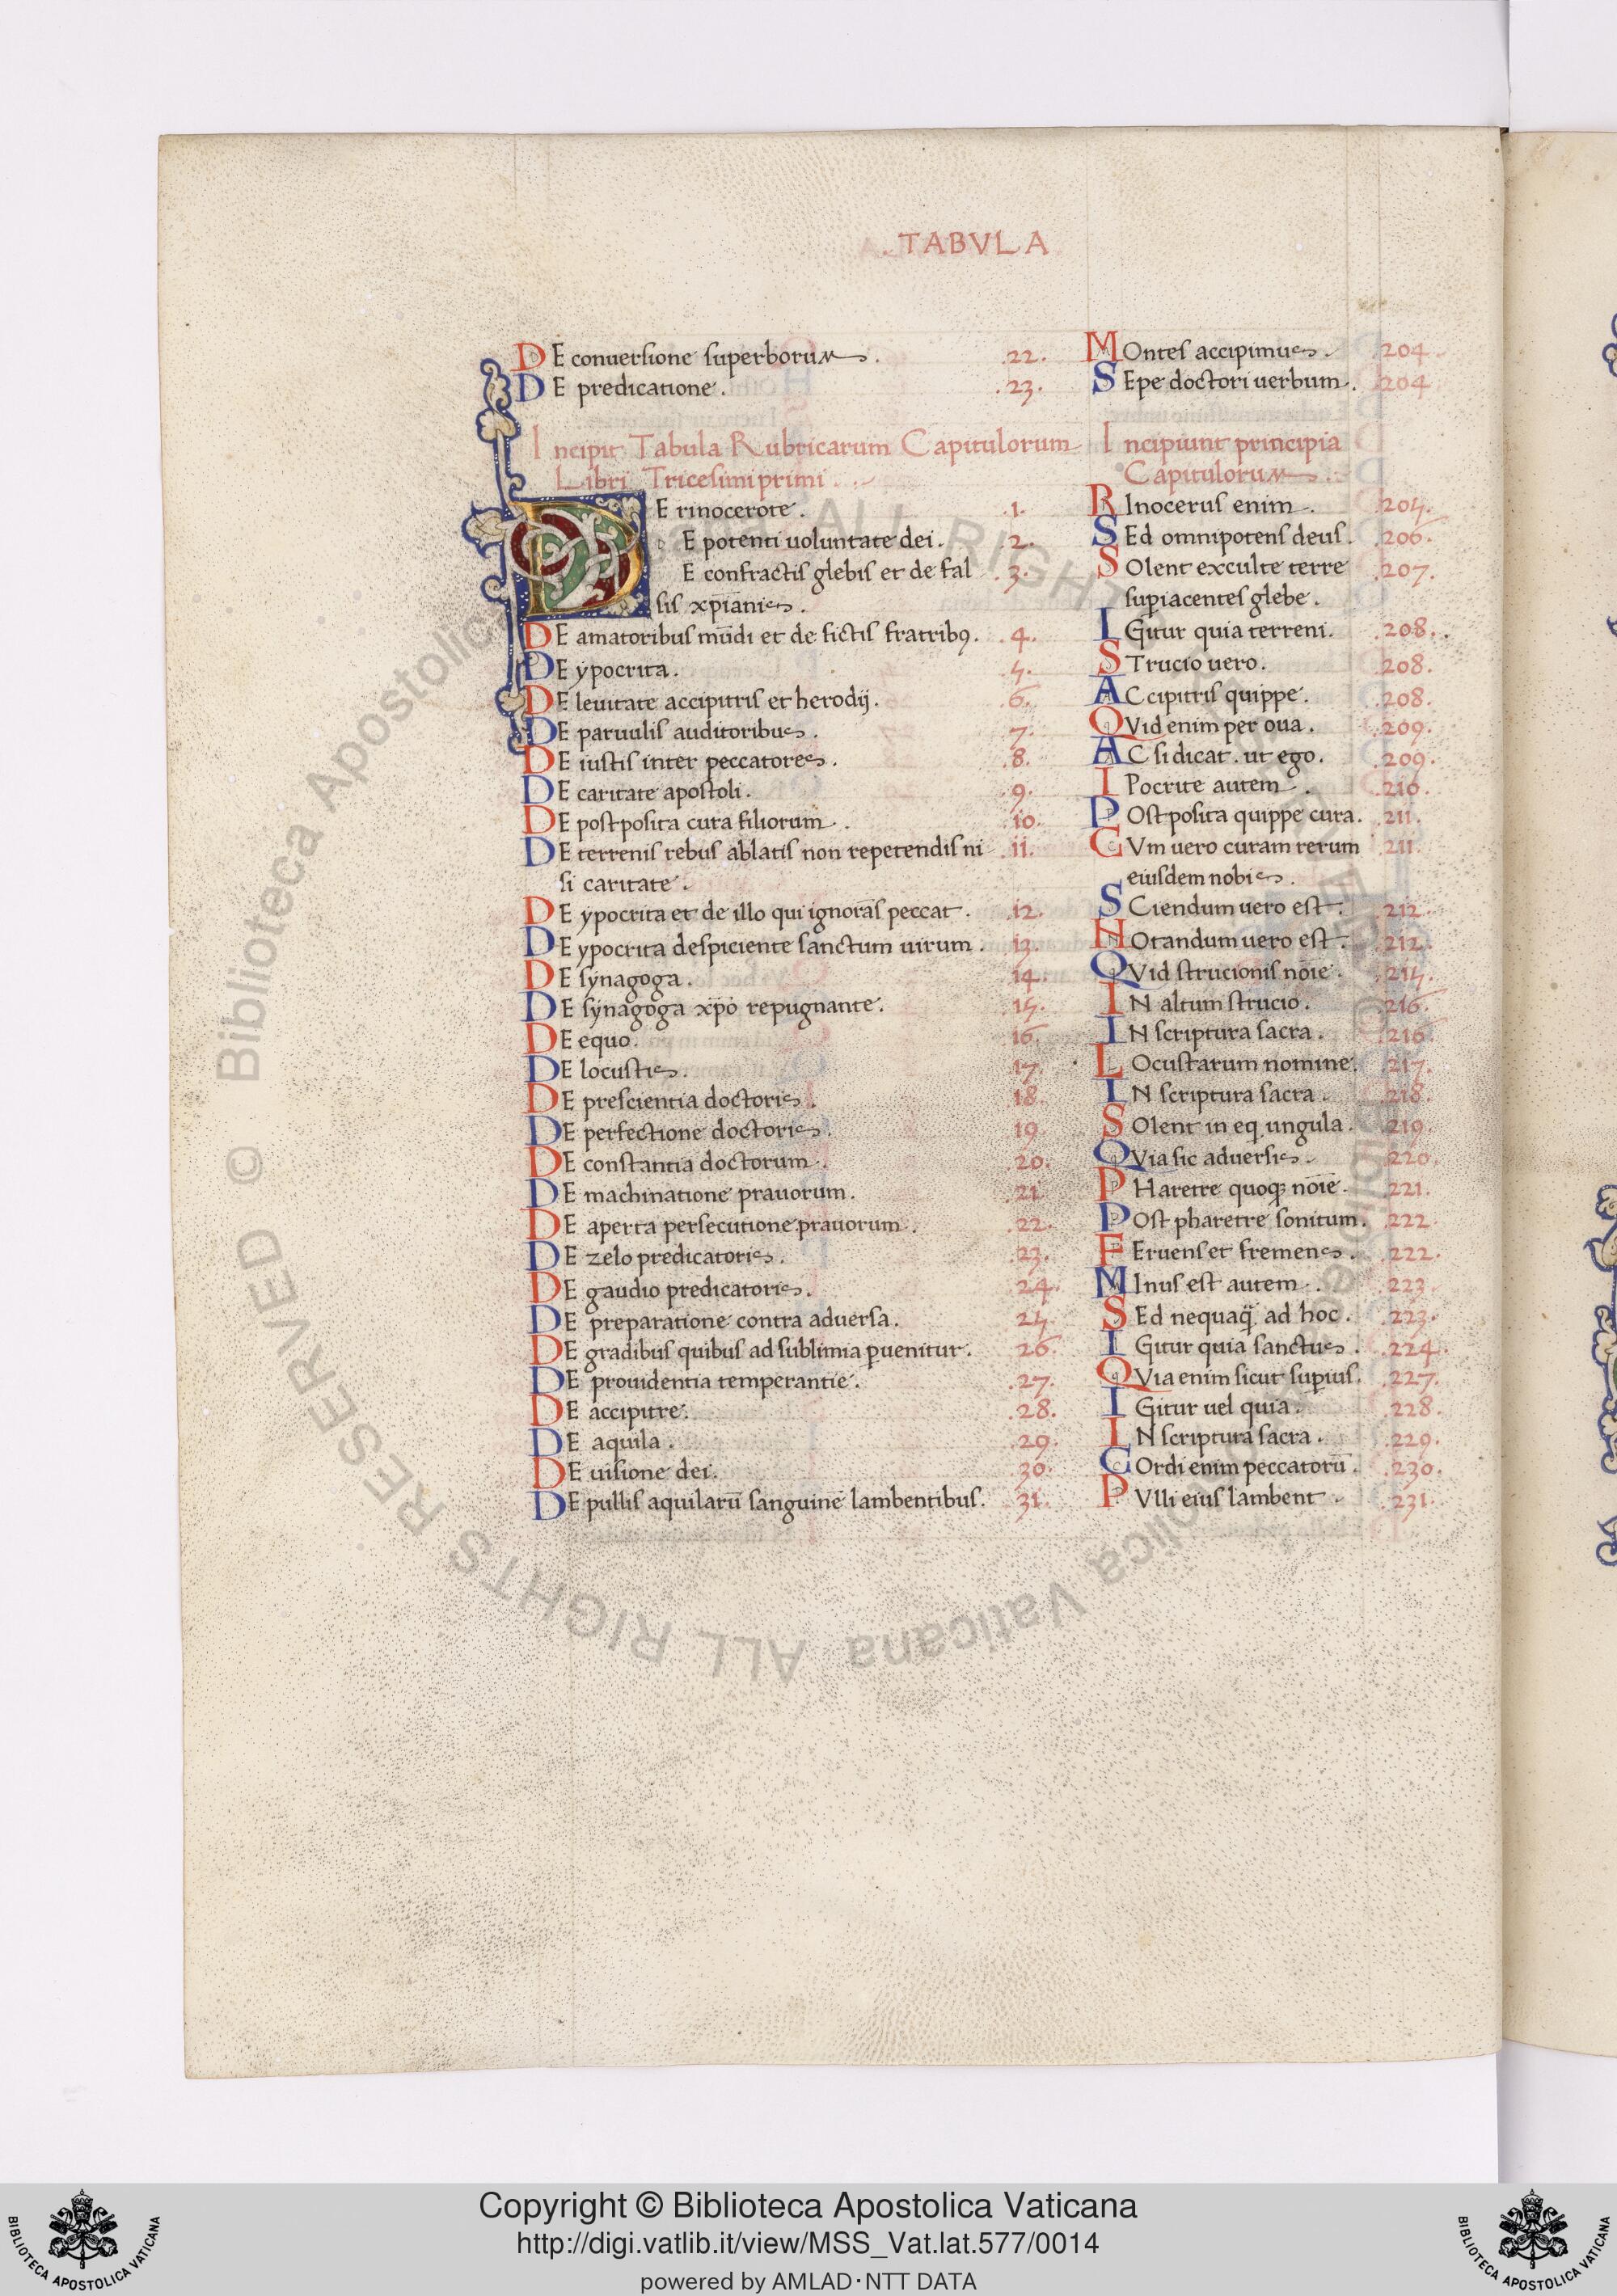 .TABVLA
DE conuersione superborum. .22. MOntes accipimus. .204.
DE predicatione. .23. SEpe doctori uerbum. .204.
Incipit Tabula Rubricarum Capitulorum Incipiunt principia
Libri Tricesimi primi. Capitulorum.
DE rinocerote. .1. RInocerus enim. .205.
E potenti uoluntate dei. .2. SEd omnipotens deus. .206.
E confractis glebis et de fal .3. SOlent exculte terre .207.
sis xp̄ianis. sup̱iacentes glebe.
DE amatoribus mūdi et de fictis fratribꝯ. .4. IGitur quia terreni. .208.
DE ẏpocrita. .5. STrucio uero. .208.
DE leuitate accipitris et herodij. .6. ACcipitris quippe. .208.
DE paruulis auditoribus. .7. QVid enim per oua. .209.
DE iustis inter peccatores. .8. AC si dicat. ut ego. .209.
DE caritate apostoli. .9. IPocrite autem. .210.
DE postposita cura filiorum. .10. POstposita quippe cura. .211.
DE terrenis rebus ablatis non repetendis ni .11. CVm uero curam rerum .211.
si caritate. eiusdem nobis.
DE ẏpocrita et de illo qui ignorās peccat. .12. SCiendum uero est. .212.
DE ẏpocrita despiciente sanctum uirum. .13. NOtandum uero est. .212.
DE sẏnagoga. .14. QVid strucionis noīe. .215.
DE sẏnagoga xp̄o repugnante. .15. IN altum strucio. .216.
DE equo. .16. IN scriptura sacra. .216.
DE locustis. .17. LOcustarum nomine. .217.
DE prescientia doctoris. .18. IN scriptura sacra. .218.
DE perfectione doctoris. .19. SOlent in eq. ungula. .219.
DE constantia doctorum. .20. QVia sic aduersis. .220.
DE machinatione prauorum. .21. PHaretre quoqꝫ noīe. .221.
DE aperta persecutione prauorum. .22. POst pharetre sonitum. .222.
DE zelo predicatoris. .23. FEruens et fremens. .222.
DE gaudio predicatoris. .24. MInus est autem. .223.
DE preparatione contra aduersa. .25. SEd nequaq̄. ad hoc. .223.
DE gradibus quibus ad sublimia ꝑuenitur. .26. IGitur quia sanctus. .224.
DE prouidentia temperantie. .27. QVia enim sicut suꝑius. .227.
DE accipitre. .28. IGitur uel quia. .228.
DE aquila. .29. IN scriptura sacra. .229.
DE uisione dei. .30. COrdi enim peccatorū. .230.
DE pullis aquilarū sanguine lambentibus. .31. PVlli eius lambent. .231.
© Biblioteca Apostolica Vaticana ALL RIGHTS RESERVED
Copyright © Biblioteca Apostolica Vaticana
http://digi.vatlib.it/view/MSS_Vat.lat.577/0014
powered by AMLAD·NTT DATA
BIBLIOTECA APOSTOLICA VATICANA
BIBLIOTECA APOSTOLICA VATICANA